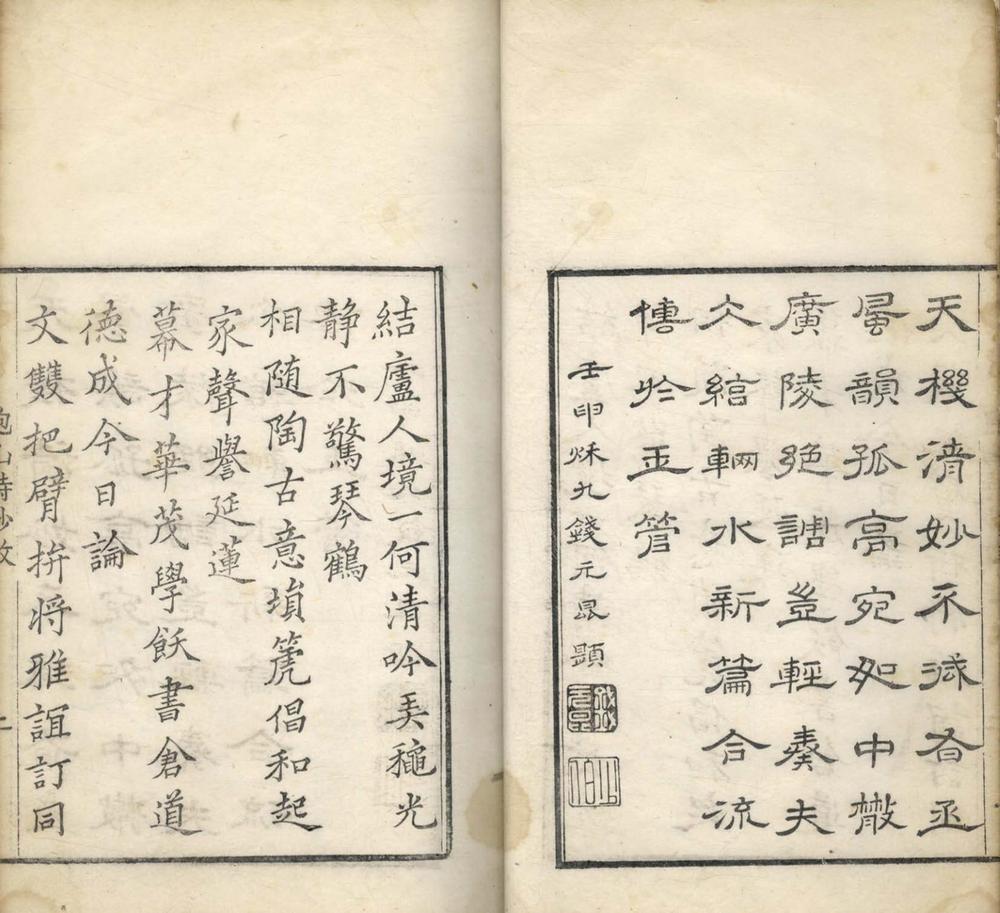 天機清妙不減右丞
風韻孤高宛如中散
廣陵絕調豈輕奏夫
仌絃輞水新篇合流
傳於玉管
壬申秌九錢元昌題
結廬人境一何清吟美穐光
靜不驚琴鶴
相随陶古意塤篪倡和起
家聲譽延蓮
幕才華茂學飫書倉道
德成今日論
文雙把臂拚将雅誼訂同